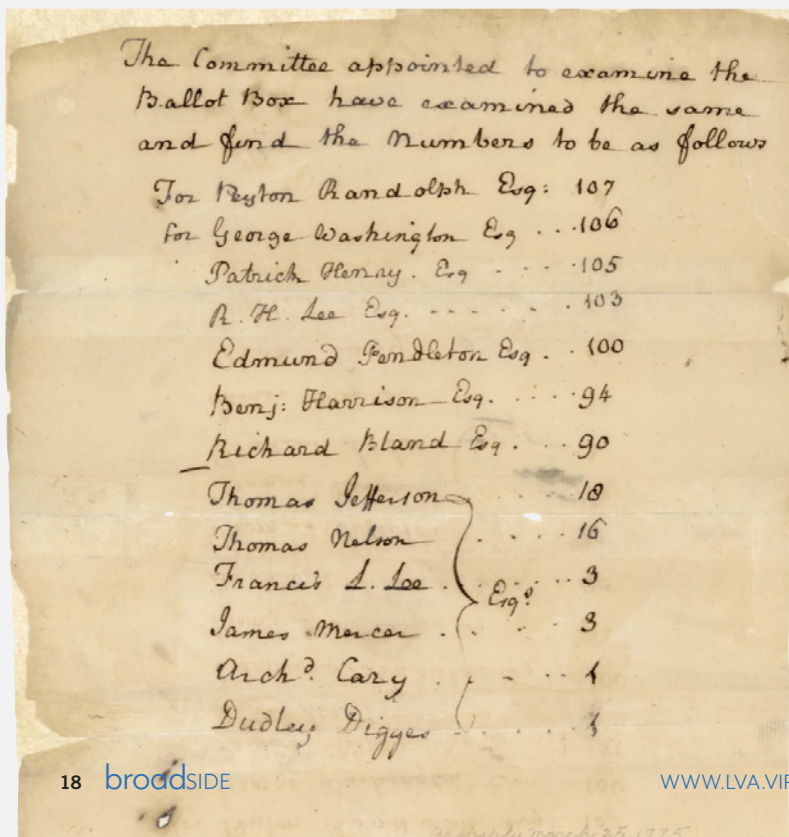 The Committee appointed to examine the
Ballot Box have examined the same
and find the Numbers to be as follows
For Peyton Randolph Esq: 107
for George Washington Esq ... 106
Patrick Henry. Esq - - - . 105
R. H. Lee Esq. - - - - - . 103
Edmund Pendleton Esq . . 100
Benj: Harrison Esq. . . . . 94
Richard Bland Esq . . . . 90
Thomas Jefferson . . . . 18
Thomas Nelson . . . . 16
Francis L. Lee . . . . . . 3
Esqs.
James Mercer . . . . 3
Archd. Cary . . - . . 1
Dudley Digges . . . . . 1
18 broadSIDE WWW.LVA.VIR
March 25 1775